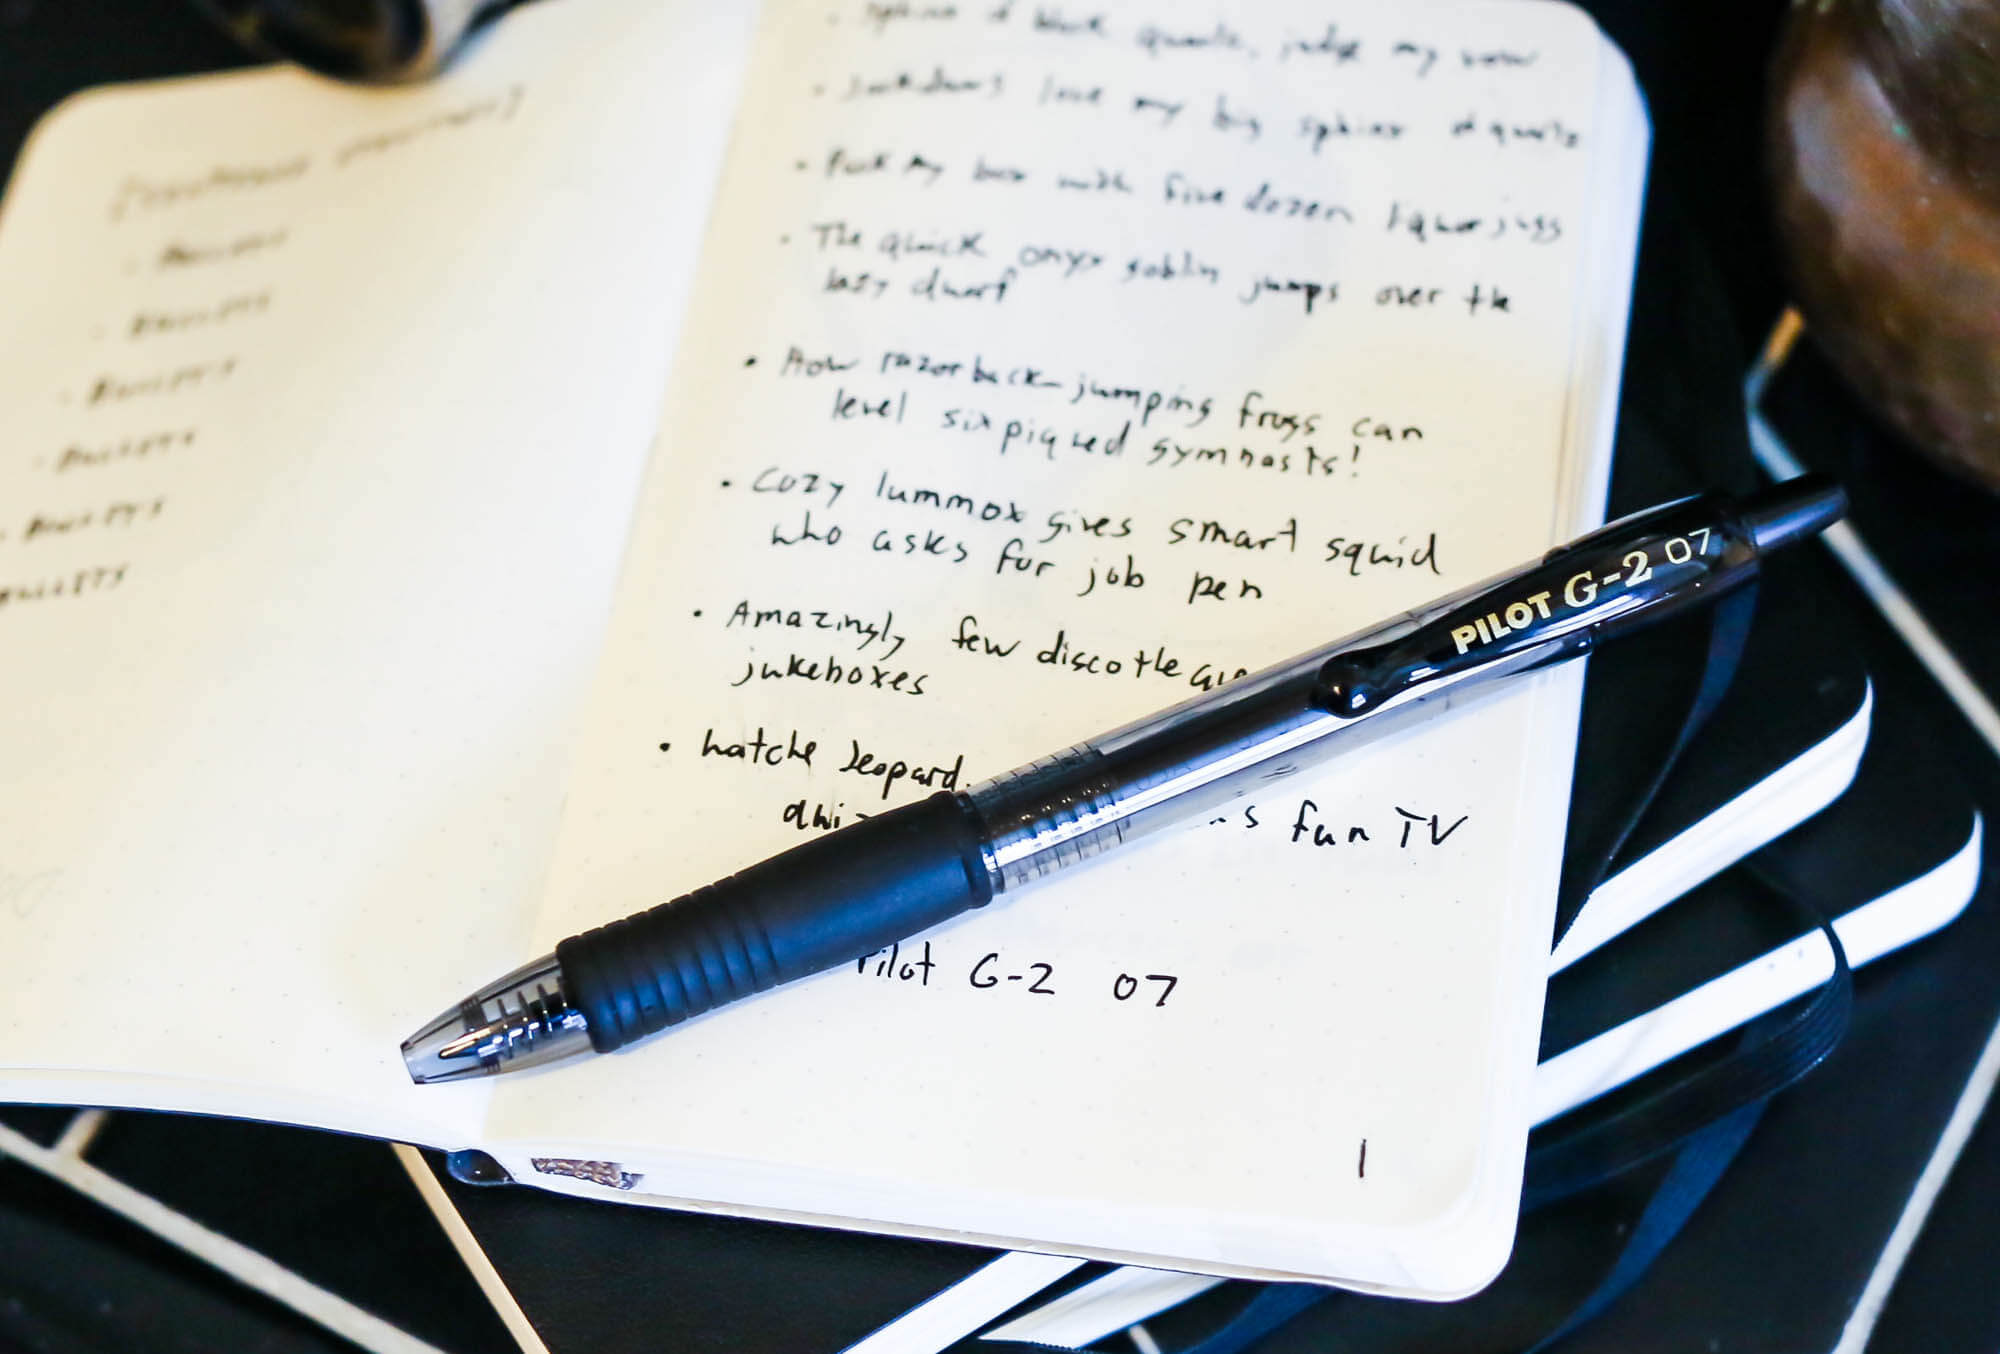 • Bullets
• Bullets
• Bullets
• Bullets
• Bullets
Bullets
• sphinx of black quartz, judge my vow
• Jackdaws love my big sphinx of quartz
• Pack my box with five dozen liquor jugs
• The quick onyx goblin jumps over the
lazy dwarf
• How razorback-jumping frogs can
level six piqued gymnasts!
• Cozy lummox gives smart squid
who asks for job pen
• Amazingly few discotheque
jukeboxes
• hatche leopard.
fun TV
Pilot G-2 07
1
PILOT G-2 07